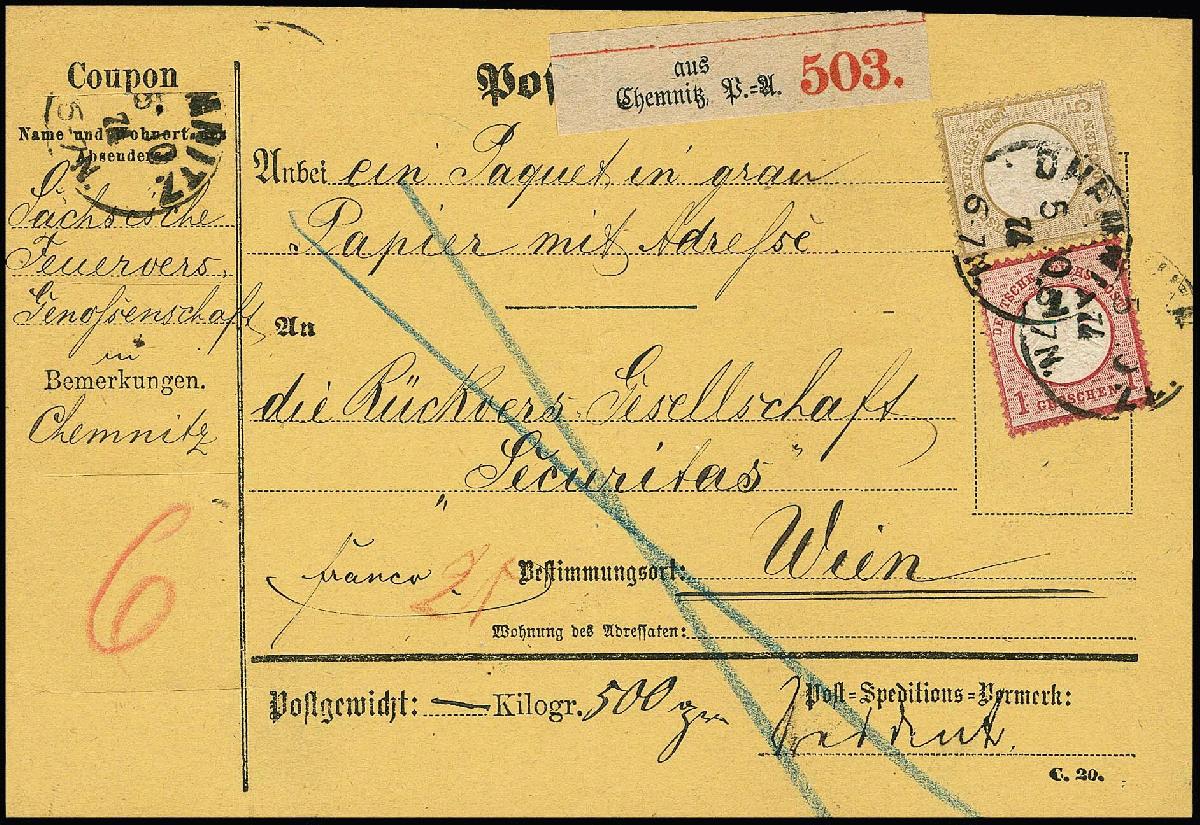 Coupon
Name und Wohnort des
Absenders
Sächsische
Feuervers.
Genoſsenschaft
in
Bemerkungen.
Chemnitz
6
Poſ
aus
Chemnitz, P.-A. 503.
Anbei ein Paquet in grau
Papier mit Adreſse
An
die Rückvers. Gesellschaft
„Securitas“
Bestimmungsort: Wien
franco
Wohnung des Adreſſaten:
Poſtgewicht: — Kilogr. 500 grm
Poſt=Speditions=Vermerk:
C. 20.
DEUTSCHE REICHS-POST
1 GROSCHEN 1
5 5
6-7N.